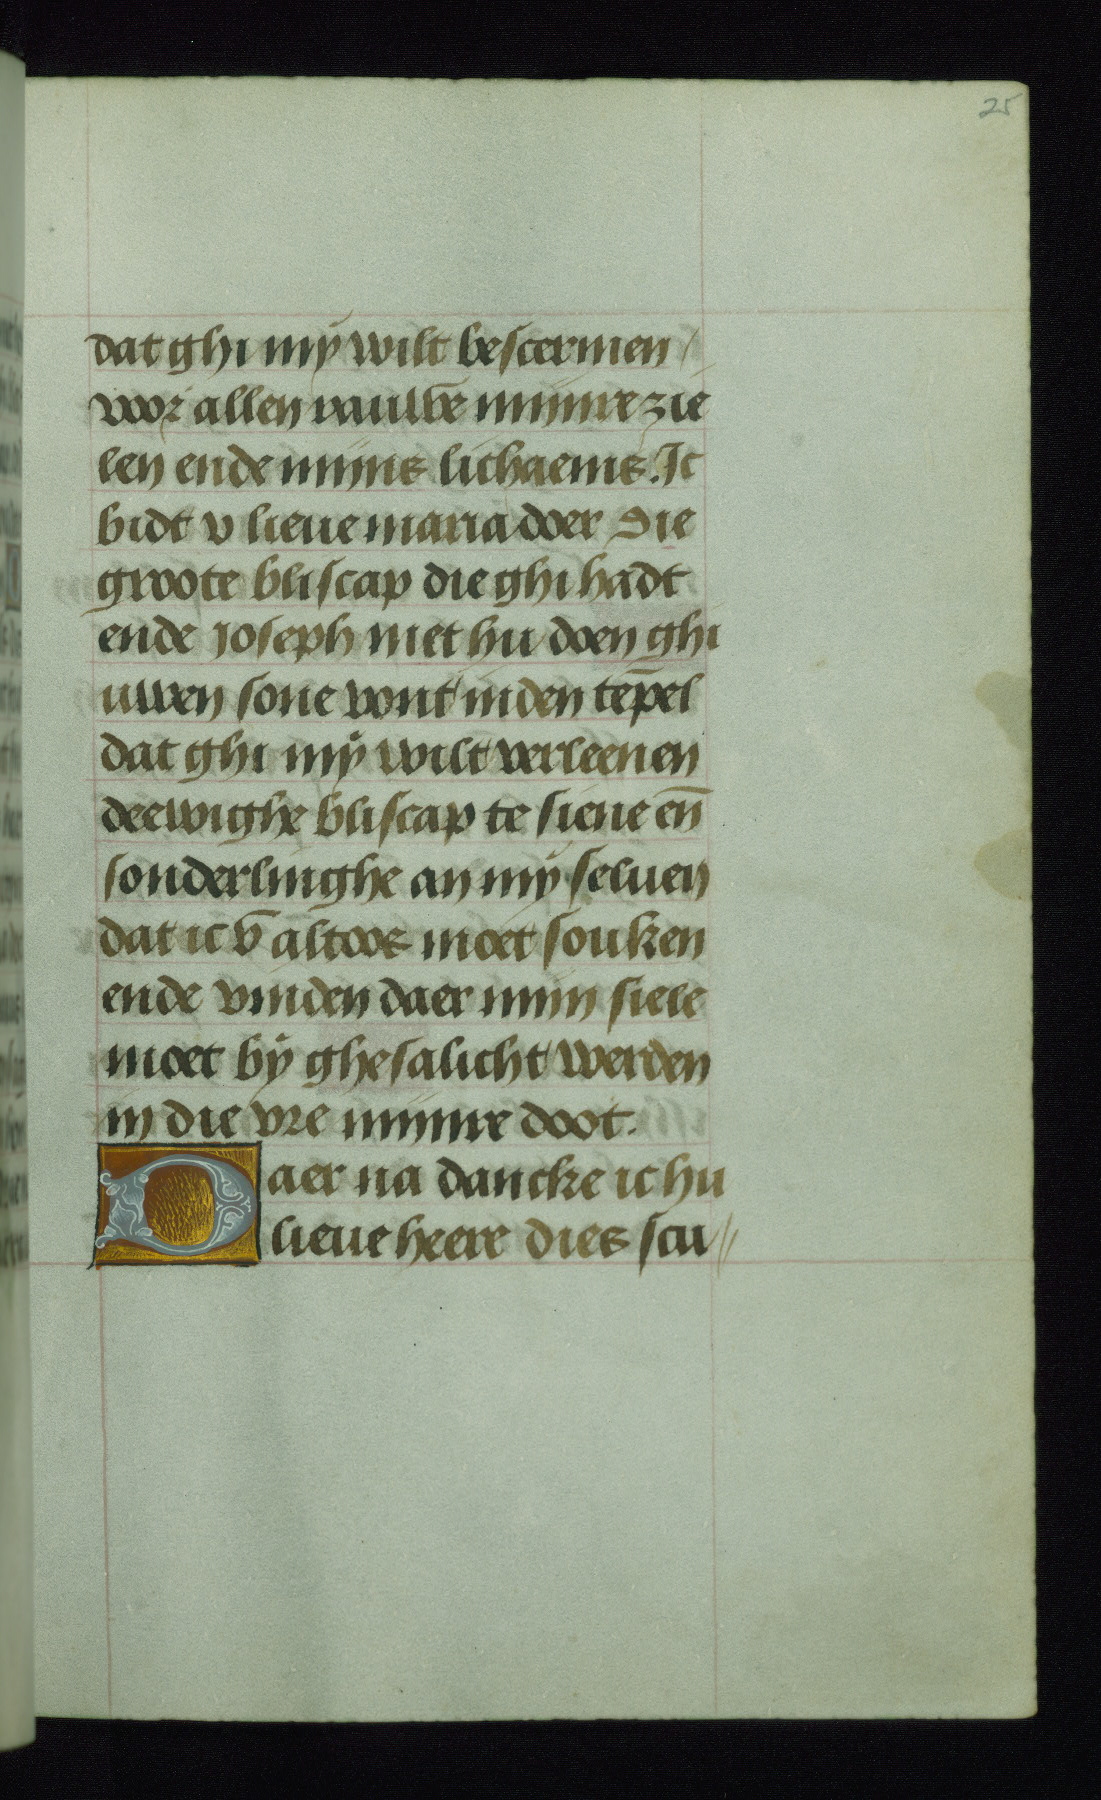 25
dat ghi mÿ wilt bescermen /
voor allen vaulbē mijnre zie
len ende mijns lichaems. Ic
bidt v lieue maria doer die
groote bliscap die ghi hadt
ende Joseph met hu doen ghi
uwen sone vont inden tēpel
dat ghi mÿ wilt verleenen
deewighe bliscap te siene eñ
sonderlinghe an mÿ seluen
dat ic v̄ altoos moet souken
ende vinden daer mijn siele
moet bÿ ghesalicht werden
in die vre mijnre doot.
Daer na dancke ic hu
lieue heere dies scu//